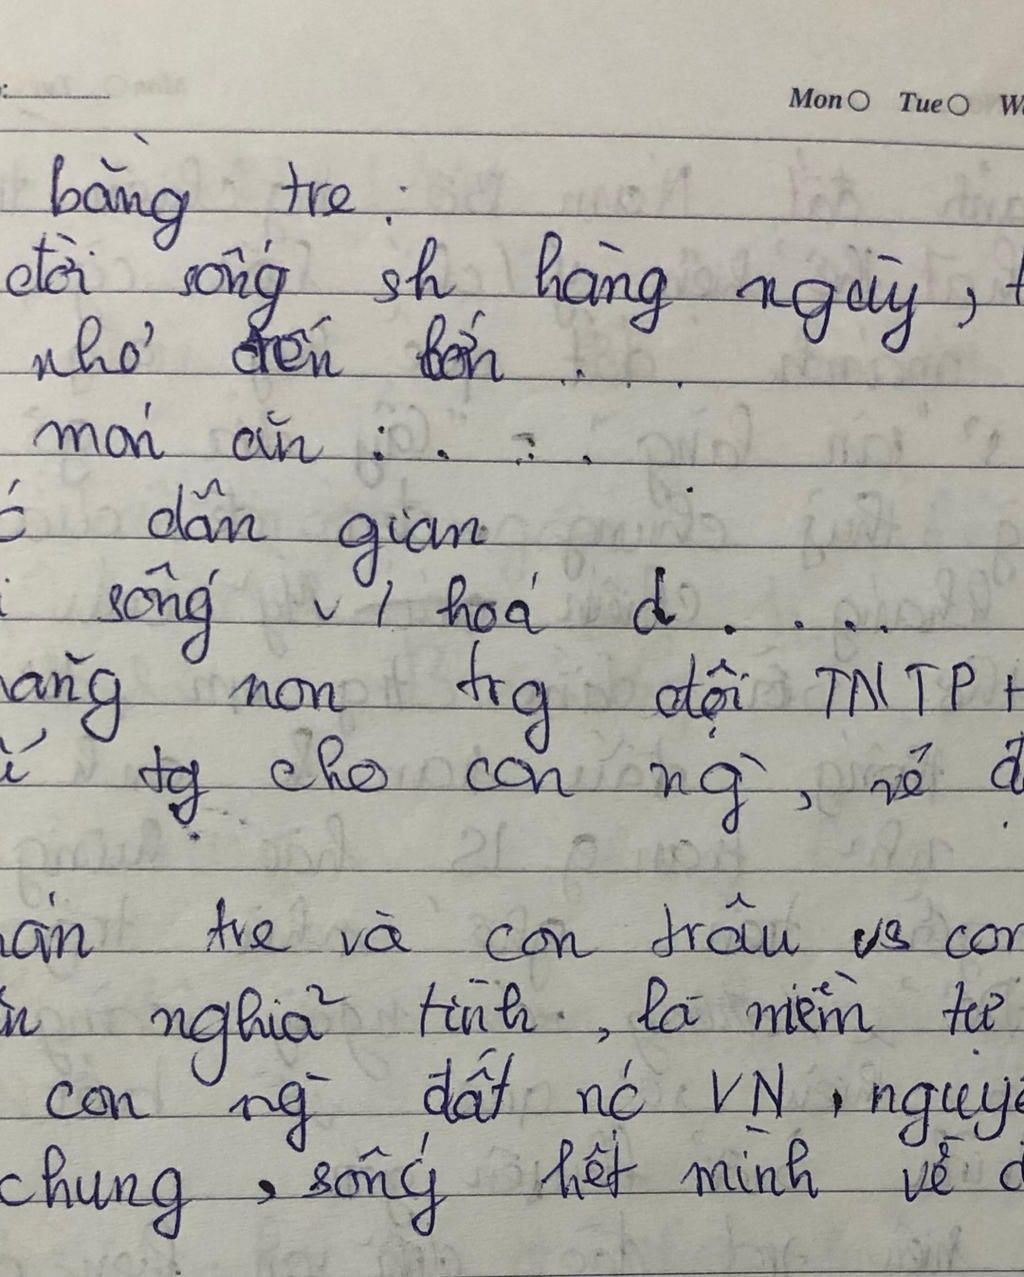 Mon Tue
bằng tre :
đời sống sh hàng ngày ,
nhớ đến bến ....
món ăn : . : .
dân gian
sống v / hoá d ....
măng non trg đội TNTP
tg cho con ng , vẻ
tre và con trâu vs con
nghĩa tình , là niềm tự
con ng đất nc VN , nguyê
chung , sống hết mình về